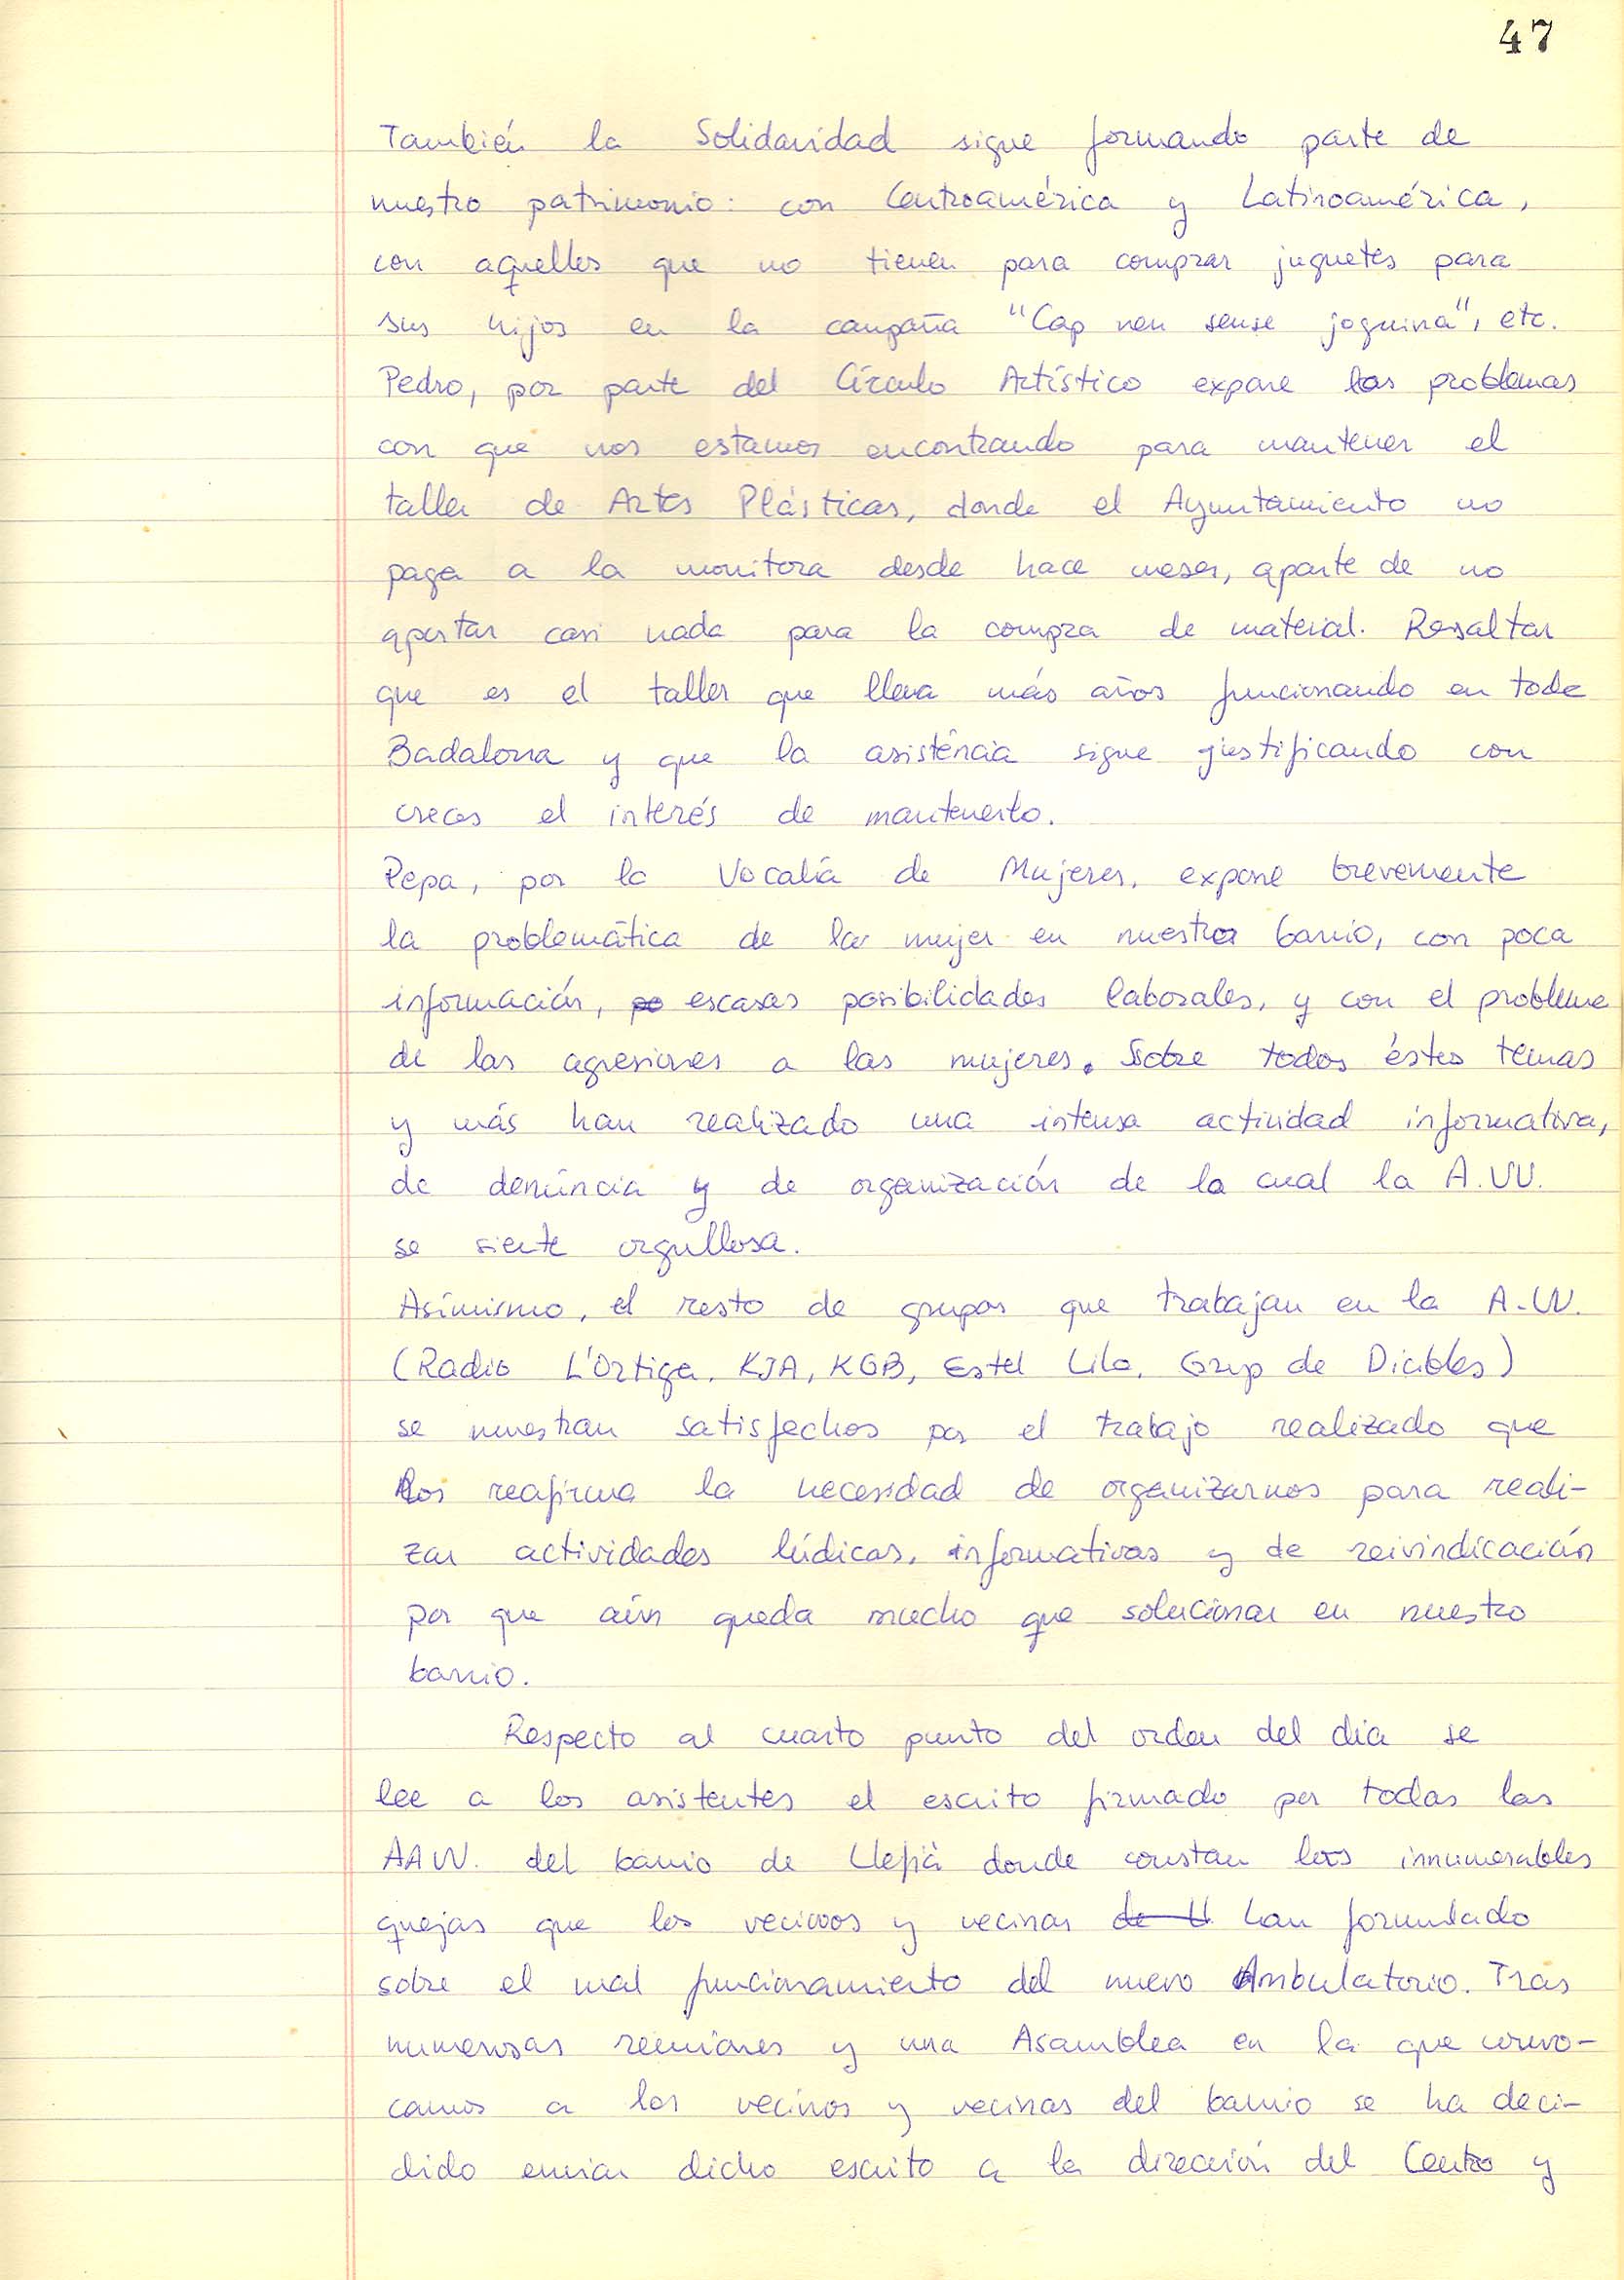 47
También la Solidaridad sigue formando parte de
nuestro patrimonio: con Centroamérica y Latinoamérica,
con aquellos que no tienen para comprar juguetes para
sus hijos en la campaña "Cap nen sense joguina", etc.
Pedro, por parte del Círculo Artístico expone los problemas
con que nos estamos encontrando para mantener el
taller de Artes Plásticas, donde el Ayuntamiento no
paga a la monitora desde hace meses, aparte de no
aportar casi nada para la compra de material. Resaltar
que es el taller que lleva más años funcionando en toda
Badalona y que la asisténcia sigue justificando con
creces el interés de mantenerlo.
Pepa, por la Vocalía de Mujeres, expone brevemente
la problemática de la mujer en nuestro barrio, con poca
información, po escasas posibilidades laborales, y con el problema
de las agresiones a las mujeres. Sobre todos éstos temas
y más han realizado una intensa actividad informativa,
de denúncia y de organización de la cual la A.VV.
se siente orgullosa.
Asímismo, el resto de grupos que trabajan en la A.VV.
(Radio L'Ortiga, KJA, KGB, Estel Lila, Grup de Diables)
se muestran satisfechos por el trabajo realizado que
nos reafirma la necesidad de organizarnos para reali-
zar actividades lúdicas, informativas y de reivindicación
por que aún queda mucho que solucionar en nuestro
barrio.
Respecto al cuarto punto del orden del día se
lee a los asistentes el escrito firmado por todas las
AAVV. del barrio de Llefià donde constan las innumerables
quejas que los vecinos y vecinas de ll han formulado
sobre el mal funcionamiento del nuevo Ambulatorio. Tras
numerosas reuniones y una Asamblea en la que convo-
camos a los vecinos y vecinas del barrio se ha deci-
dido enviar dicho escrito a la dirección del Centro y